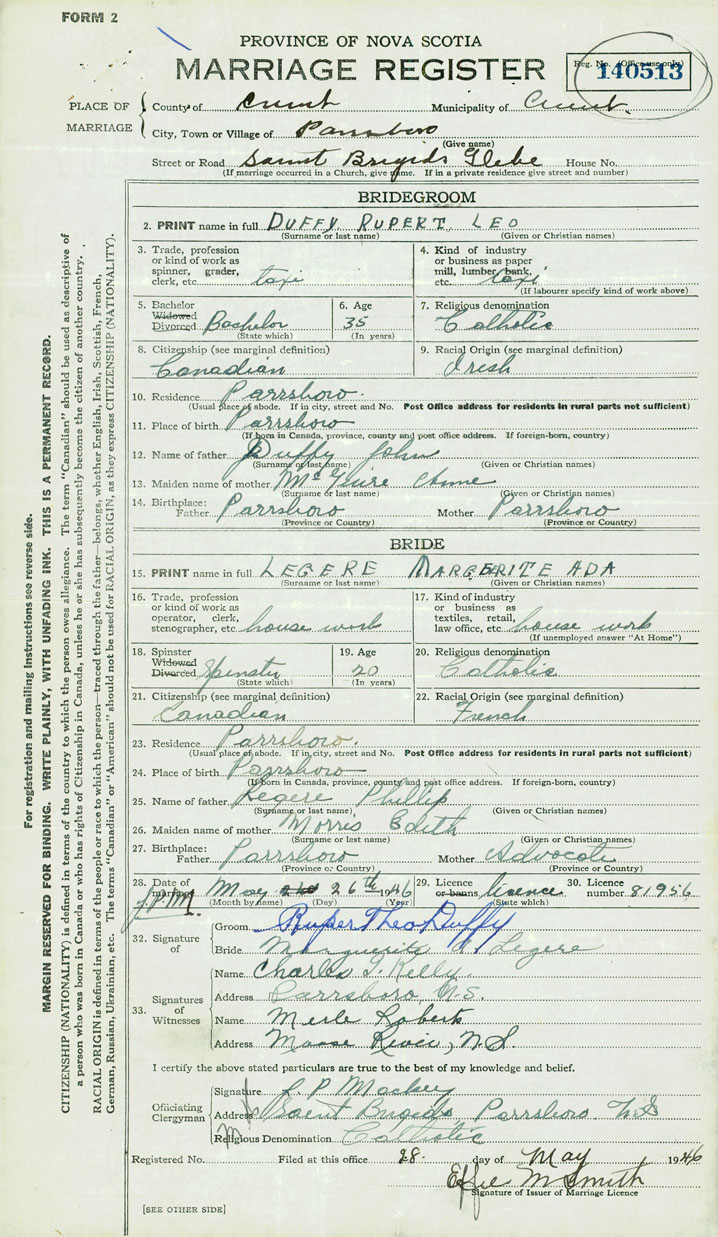 FORM 2
PROVINCE OF NOVA SCOTIA
MARRIAGE REGISTER
Reg. No. (Office use only)
140513
PLACE OF MARRIAGE
County of Cumb. Municipality of Cumb.
City, Town or Village of Parrsboro
(Give name)
Street or Road Saint Brigids Glebe House No.
(If marriage occurred in a Church, give name. If in a private residence give street and number)
BRIDEGROOM
2. PRINT name in full DUFFY RUPERT LEO
(Surname or last name) (Given or Christian names)
3. Trade, profession or kind of work as spinner, grader, clerk, etc. taxi
4. Kind of industry or business as paper mill, lumber, bank, etc. taxi
(If labourer specify kind of work above)
5. Bachelor Widowed Divorced Bachelor
(State which)
6. Age 35
(In years)
7. Religious denomination Catholic
8. Citizenship (see marginal definition) Canadian
9. Racial Origin (see marginal definition) Irish
10. Residence Parrsboro.
(Usual place of abode. If in city, street and No. Post Office address for residents in rural parts not sufficient)
11. Place of birth Parrsboro
(If born in Canada, province, county and post office address. If foreign-born, country)
12. Name of father Duffy John
(Surname or last name) (Given or Christian names)
13. Maiden name of mother McGuire Anne
(Surname or last name) (Given or Christian names)
14. Birthplace: Father Parrsboro Mother Parrsboro
(Province or Country) (Province or Country)
BRIDE
15. PRINT name in full LEGERE MARGERITE ADA
(Surname or last name) (Given or Christian names)
16. Trade, profession or kind of work as operator, clerk, stenographer, etc. house work
17. Kind of industry or business as textiles, retail, law office, etc. house work
(If unemployed answer "At Home")
18. Spinster Widowed Divorced Spinster
(State which)
19. Age 20
(In years)
20. Religious denomination Catholic
21. Citizenship (see marginal definition) Canadian
22. Racial Origin (see marginal definition) French
23. Residence Parrsboro.
(Usual place of abode. If in city, street and No. Post Office address for residents in rural parts not sufficient)
24. Place of birth Parrsboro
(If born in Canada, province, county and post office address. If foreign-born, country)
25. Name of father Legere Phillip
(Surname or last name) (Given or Christian names)
26. Maiden name of mother Morris Edith
(Surname or last name) (Given or Christian names)
27. Birthplace: Father Parrsboro Mother Advocate
(Province or Country) (Province or Country)
28. Date of May 26th 1946
(Month by name) (Day) (Year)
J.P.M.
29. Licence or banns licence
(State which)
30. Licence number 81956
32. Signature of
Groom Rupert Leo Duffy
Bride Marguerite A Legere
33. Signatures of Witnesses
Name Charles J. Kelly.
Address Parrsboro, N.S.
Name Merle Roberts
Address Moose River, N.S.
I certify the above stated particulars are true to the best of my knowledge and belief.
Officiating Clergyman
Signature J. P. Mackey
Address Saint Brigids Parrsboro N.S
Religious Denomination Catholic
Registered No. Filed at this office 28. day of May 1946
Effie M Smith
Signature of Issuer of Marriage Licence
[SEE OTHER SIDE]
For registration and mailing instructions see reverse side.
MARGIN RESERVED FOR BINDING. WRITE PLAINLY, WITH UNFADING INK. THIS IS A PERMANENT RECORD.
CITIZENSHIP (NATIONALITY) is defined in terms of the country to which the person owes allegiance. The term "Canadian" should be used as descriptive of
a person who was born in Canada or who has rights of Citizenship in Canada, unless he or she has subsequently become the citizen of another country.
RACIAL ORIGIN is defined in terms of the people or race to which the person—traced through the father—belongs, whether English, Irish, Scottish, French,
German, Russian, Ukrainian, etc. The terms "Canadian" or "American" should not be used for RACIAL ORIGIN, as they express CITIZENSHIP (NATIONALITY).